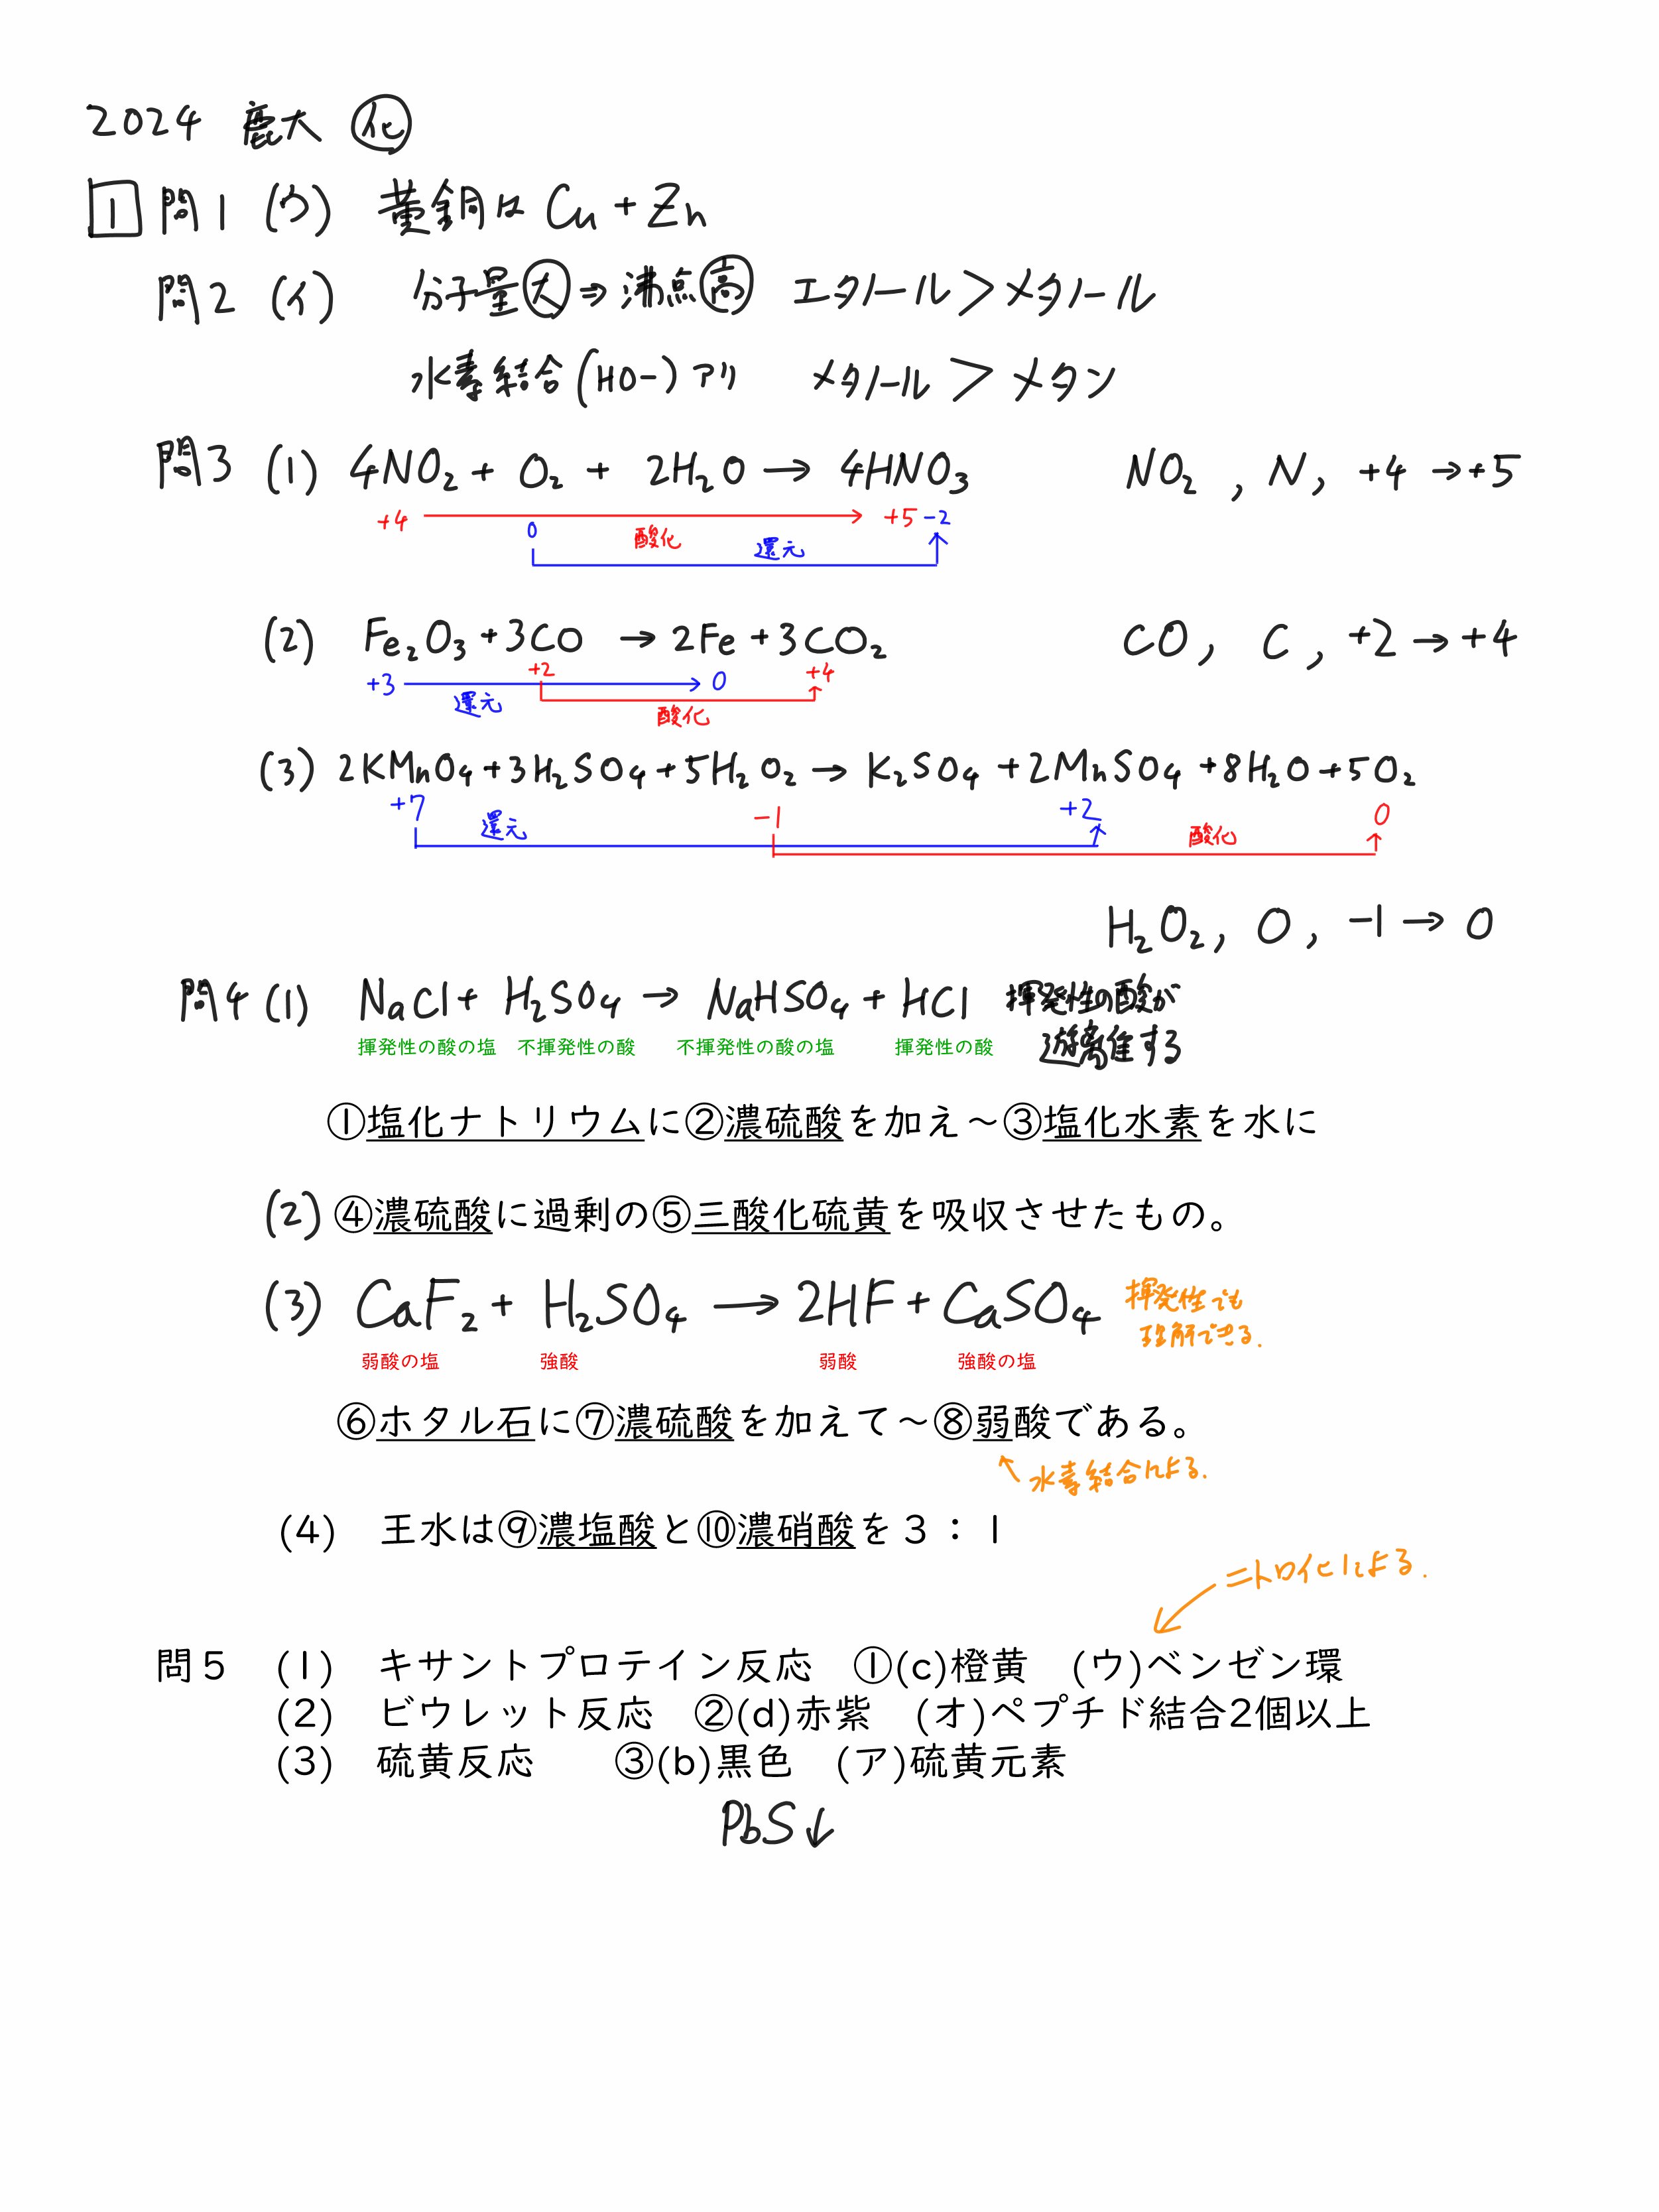 2024 鹿大 ㊋化
1 問1 (ウ) 黄銅は Cu + Zn
問2 (イ) 分子量大⇒沸点高 エタノール>メタノール
水素結合(HO-)アリ メタノール > メタン
問3 (1) 4NO₂ + O₂ + 2H₂O → 4HNO₃ NO₂, N, +4 →+5
+4 0 酸化 還元 +5 -2
(2) Fe₂O₃ +3CO → 2Fe +3CO₂ CO, C, +2 → +4
+3 還元 +2 酸化 0 +4
(3) 2KMnO₄+3H₂SO₄+5H₂O₂ → K₂SO₄ +2MnSO₄ +8H₂O+5O₂
+7 還元 -1 +2 酸化 0
H₂O₂, O, -1 → 0
問4 (1) NaCl+ H₂SO₄ → NaHSO₄ + HCl 揮発性の酸が
揮発性の酸の塩 不揮発性の酸 不揮発性の酸の塩 揮発性の酸 遊離する
①塩化ナトリウムに②濃硫酸を加え～③塩化水素を水に
(2) ④濃硫酸に過剰の⑤三酸化硫黄を吸収させたもの。
(3) CaF₂ + H₂SO₄ → 2HF + CaSO₄ 揮発性でも
理解できる.
弱酸の塩 強酸 弱酸 強酸の塩
⑥ホタル石に⑦濃硫酸を加えて～⑧弱酸である。
水素結合による.
(4) 王水は⑨濃塩酸と⑩濃硝酸を3：1
ニトロ化による.
問5 (1) キサントプロテイン反応 ①(c)橙黄 (ウ)ベンゼン環
(2) ビウレット反応 ②(d)赤紫 (オ)ペプチド結合2個以上
(3) 硫黄反応 ③(b)黒色 (ア)硫黄元素
PbS↓